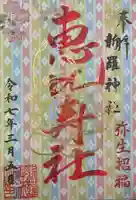 奉拝
新羅神社
弥生招福
恵比寿社
令和七年三月五日